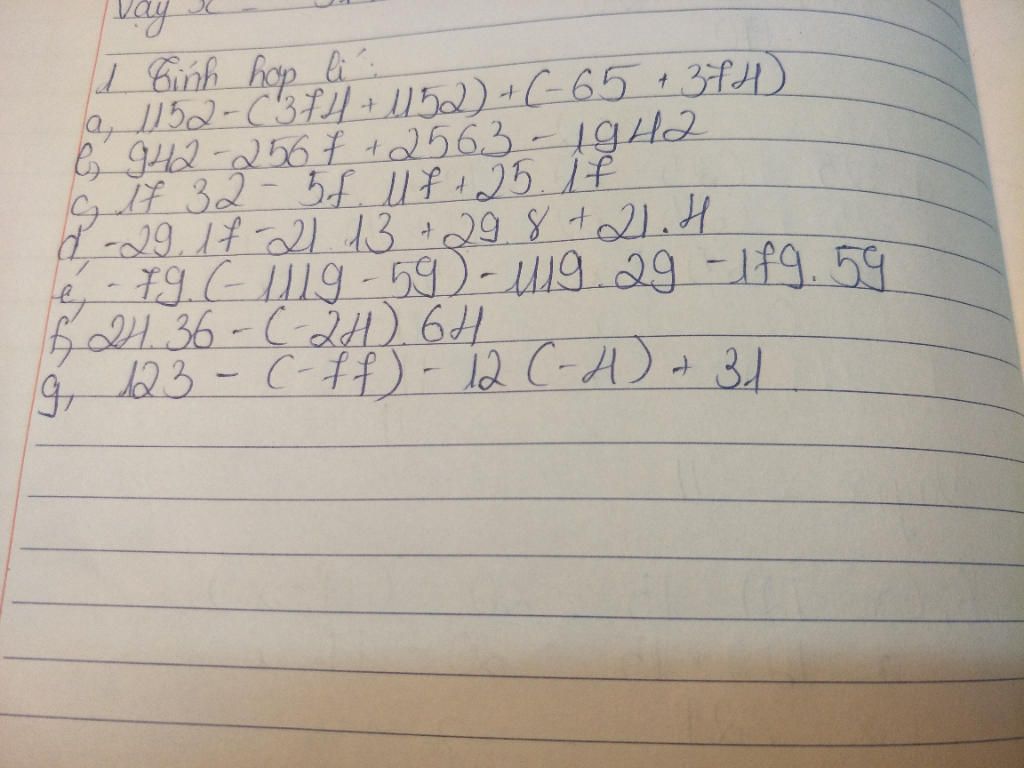 Vậy x =
1 Tính hợp lí:
a, 1152 - (374 + 1152) + (-65 + 374)
b, 942 - 2567 + 2563 - 1942
c, 17 32 - 57. 117 + 25. 17
d, -29. 17 - 21. 13 + 29. 8 + 21. 4
é, - 79. (- 1119 - 59) - 1119. 29 - 179. 59
f, 24. 36 - (-24). 64
g, 123 - (-77) - 12 (-4) + 31